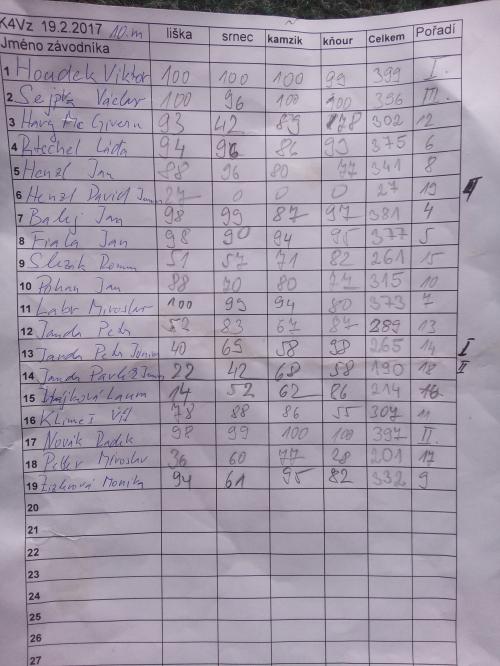 K4Vz 19.2.2017 10.m liška srnec kamzik kňour Celkem Pořadí
Jméno závodníka
1 Houdek Viktor 100 100 100 99 399 I.
2 Sejpka Václav 100 96 100 100 396 III.
3 93 42 89 78 302 12
4 94 96 86 99 375 6
5 Henzl Jan 88 96 80 77 341 8
6 Henzl David Junior 27 0 0 0 27 19
7 Jan 98 99 87 97 381 4
8 Fiala Jan 98 90 94 95 377 5
9 51 57 71 82 261 15
10 Jan 88 70 80 77 315 10
11 Miroslav 100 99 94 80 373 7
12 Janda Petr 52 83 67 87 289 13
13 Janda Petr Junior 40 69 58 98 265 14 I
14 Janda Pavel Junior 22 42 68 58 190 18 II
15 14 52 62 86 214 16
16 Kliment 78 88 86 55 307 11
17 Novák Radek 98 99 100 100 397 II.
18 Miroslav 36 60 77 28 201 17
19 Monika 94 61 95 82 332 9
20
21
22
23
24
25
26
27